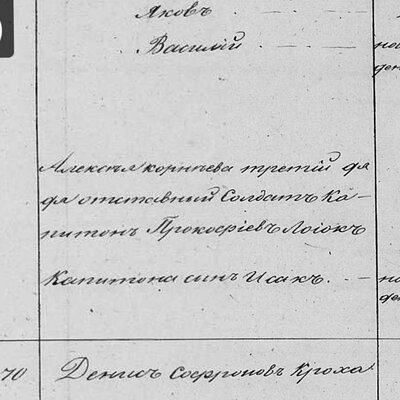 Яковъ
Василій
но
ден
Алексѣя корнѣева третій дя
дя отставный Солдатъ Ка-
питонъ Прокофіевъ Лоіокъ
Капитона синъ Исакъ.
но
ден
70 Денисъ Софроновъ Кроха